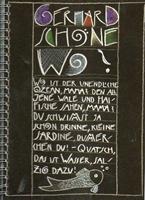 GERHARD
SCHÖNE
WO?
WO IST DER UNENDLICHE
OZEAN, MAMA? DEN ALL
JENE WALE UND HAI-
FISCHE SAHEN, MAMA?
DU SCHWIMMST JA
SCHON DRINNE, KLEINE
SARDINE. DU
DU! - QUATSCH,
DAS IST WASSER, SAL-
ZIG DAZU!